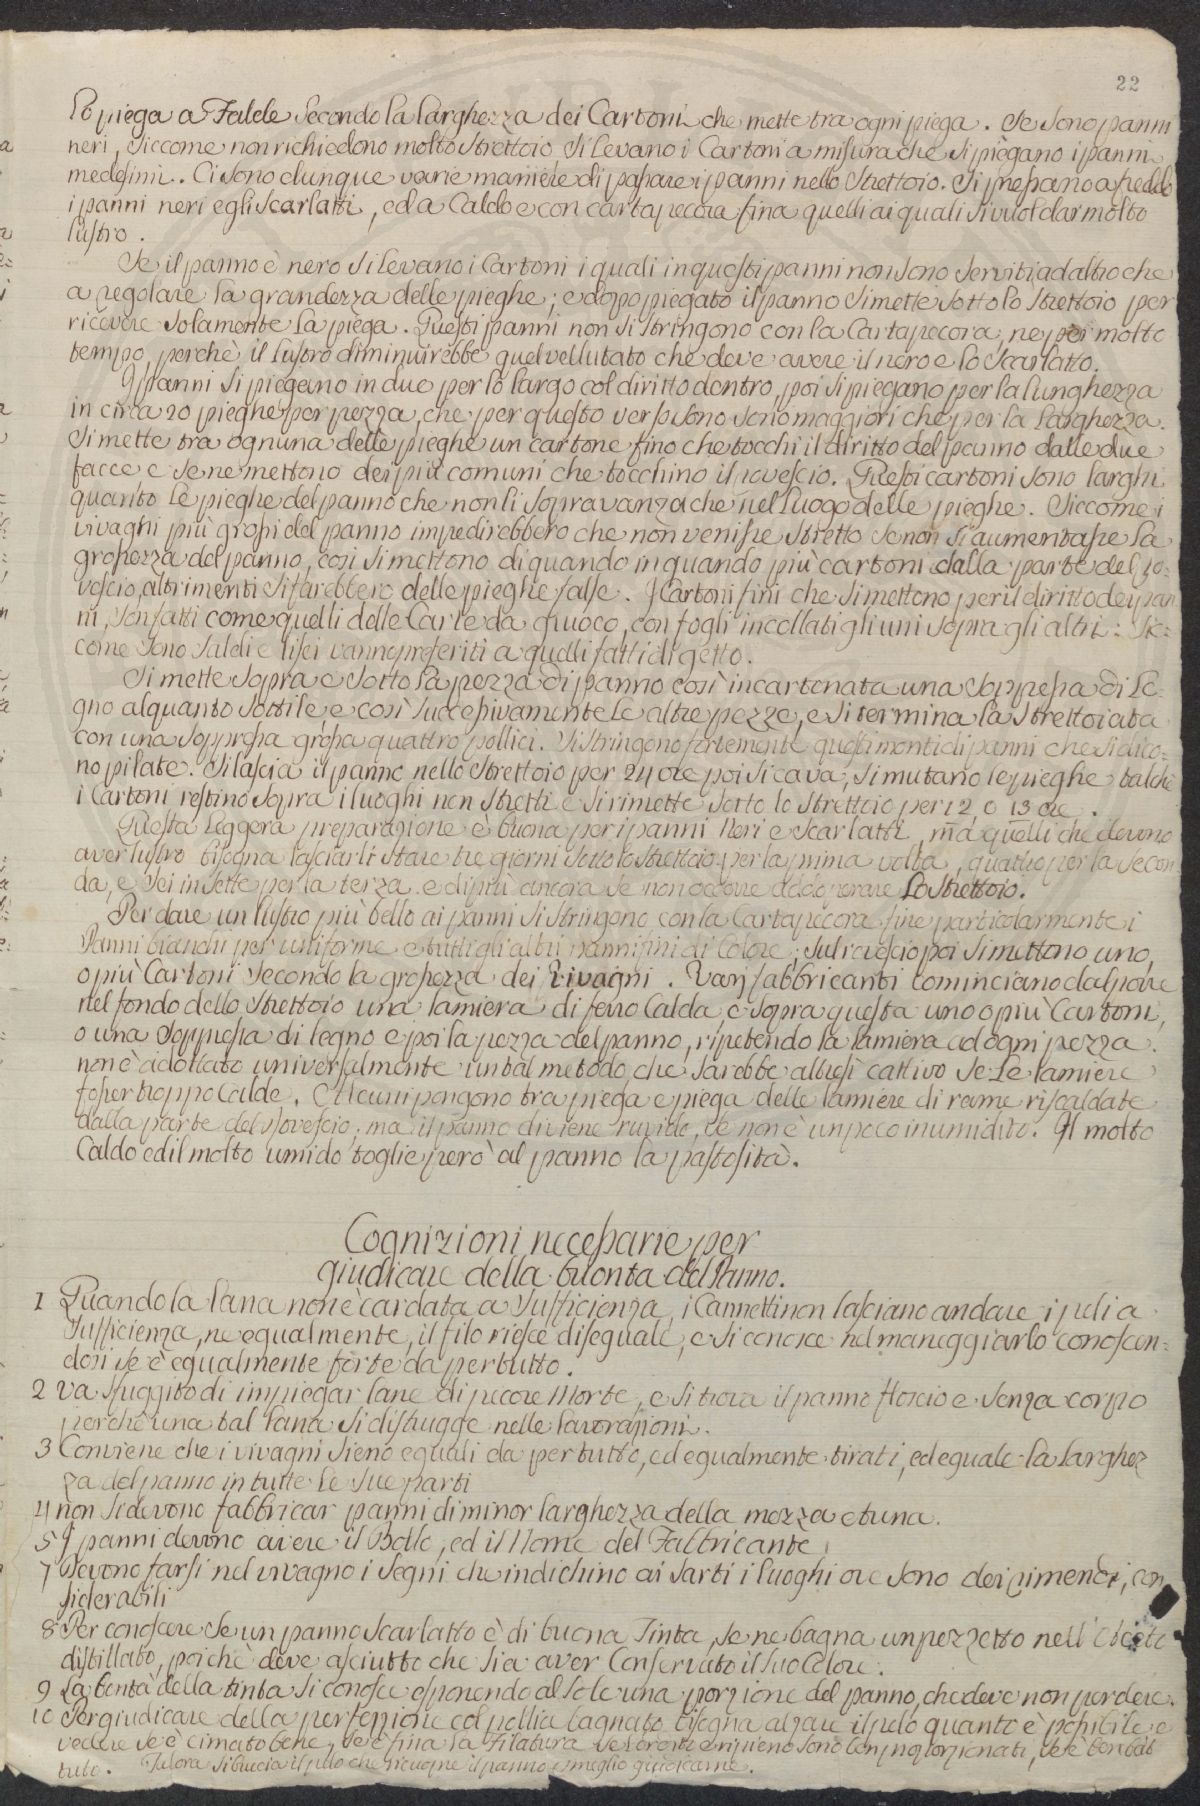 22
Lo piega a Falde secondo la larghezza dei Cartoni che mette tra ogni piega. Se sono panni
neri, siccome non richiedono molto Strettoio si levano i Cartoni a misura che si piegano i panni
medesimi. Ci sono dunque varie maniere di passare i panni nello Strettoio. Si pressano a freddo
i panni neri e gli Scarlatti, ed a Caldo e con cartapecora fina quelli ai quali si vuol dar molto
lustro.
Se il panno è nero si levano i Cartoni i quali in questi panni non sono serviti ad altro che
a regolare la grandezza delle pieghe; e dopo piegato il panno si mette sotto lo Strettoio per
ricevere solamente la piega. Questi panni non si stringono con la Cartapecora, ne poi molto
tempo, perchè il lustro diminuirebbe quel vellutato che deve avere il nero e lo Scarlatto.
I panni si piegano in due per lo largo col diritto dentro, poi si piegano per la lunghezza
in circa 20 pieghe per pezza, che per questo verso sono maggiori che per la larghezza.
Si mette tra ognuna delle pieghe un cartone fino che tocchi il diritto del panno dalle due
facce e se ne mettono dei più comuni che tocchino il rovescio. Questi cartoni sono larghi
quanto le pieghe del panno che non li sopravanza che nel luogo delle pieghe. Siccome i
vivagni più grossi del panno impedirebbero che non venisse stretto se non si aumentasse la
grossezza del panno, così si mettono di quando in quando più cartoni dalla parte del ro=
vescio, altrimenti si farebbero delle pieghe false. I Cartoni fini che si mettono per il diritto dei pan
ni, son fatti come quelli delle Carte da giuoco, con fogli incollati gli uni sopra gli altri: Sic=
come sono saldi e lisci vanno preferiti a quelli fatti di getto.
Si mette sopra e sotto la pezza di panno così incartonata una soppressa di Le=
gno alquanto sottile, e così successivamente le altre pezze, e si termina la Strettoiata
con una soppressa grossa quattro pollici. Si stringono fortemente questi monti di panni che si dico=
no pilate. Si lascia il panno nello Strettoio per 24 ore poi si cava, si mutano le pieghe talchè
i Cartoni restino sopra i luoghi non stretti e si rimette sotto lo Strettoio per 12, o 13 ore.
Questa leggera preparazione è buona per i panni Neri e Scarlatti, ma quelli che devono
aver lustro bisogna lasciarli stare tre giorni sotto lo Strettoio per la prima volta, quattro per la secon
da, e sei in sette per la terza e di più ancora se non occorre adoperare lo Strettoio.
Per dare un lustro più bello ai panni si stringono con la Cartapecora fine particolarmente i
Panni bianchi per uniforme e tutti gli altri panni fini di Colore; sul rovescio poi si mettono uno,
o più Cartoni secondo la grossezza dei vivagni. Varj fabbricanti cominciano dal porre
nel fondo dello Strettoio una lamiera di ferro Calda, e sopra questa uno o più Cartoni,
o una Soppressa di legno e poi la pezza del panno, ripetendo la lamiera ad ogni pezza.
non è adottato universalmente un tal metodo, che sarebbe altresì cattivo se le lamiere
fosser troppo Calde. Alcuni pongono tra piega e piega delle lamiere di rame riscaldate
dalla parte del rovescio; ma il panno diviene ruvido, se non è un poco inumidito. Il molto
Caldo ed il molto umido toglie però al panno la pastosità.
Cognizioni necessarie per
giudicare della buonta del Panno.
1 Quando la lana non è cardata a sufficienza, i Cannelli non lasciano andare i peli a
sufficienza, ne egualmente, il filo riesce diseguale, e si conosce nel maneggiarlo conoscen=
dosi se è egualmente forte da per tutto.
2 Va sfuggito di impiegar lane di pecore Morte, e si trova il panno floscio e senza corpo
perchè una tal lana si distrugge nelle lavorazioni.
3 Conviene che i vivagni sieno eguali da per tutto, ed egualmente tirati, ed eguale la larghez
za del panno in tutte le sue parti
4 non si devono fabbricar panni di minor larghezza della mezza e tuna.
5 I panni devono avere il Bollo, ed il Nome del Fabbricante.
7 Devono farsi nel vivagno i segni che indichino ai Sarti i luoghi ove sono dei rimendi, con
siderabili
8 Per conoscere se un panno Scarlatto è di buona Tinta, se ne bagna un pezzetto nell'
distillato, poichè deve asciutto che sia aver Conservato il suo Colore.
9 La bontà della tinta si conosce esponendo al sole una porzione del panno, che deve non perdere.
10 Per giudicare della perfezzione col pollia bagnato bisogna alzare il pelo quanto è possibile e
vedere se è cimato bene, se è fina la filatura se l'ordito e ripieno sono ben proporzionati, se è ben bat
tuto. Talora si brucia il pelo che ricuopre il panno e meglio giudicarne.